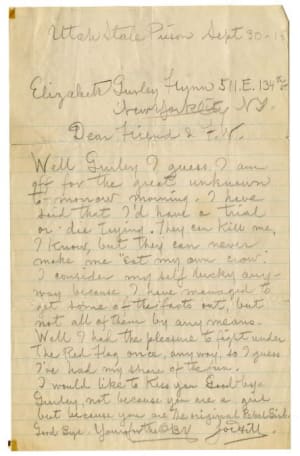 Utah State Prison Sept 30-15
Elizabeth Gurley Flynn 511.E.134th St
New York City N.Y.
Dear Friend & F.W.
Well Gurley I guess I am
off for the great unknown
to-morrow morning. I have
said that I'd have a trial
or die trying. They can kill me,
I know, but they can never
make me "eat my own crow."
I consider my self lucky any-
way because I have managed to
get some of the facts out, but
not all of them by any means.
Well I had the pleasure to fight under
The Red Flag once, any way, so I guess
I've had my share of the fun.
I would like to kiss you Good-bye
Gurley, not because you are a girl
but because you are the original Rebel Girl.
Good Bye. Yours for the OBU Joe Hill